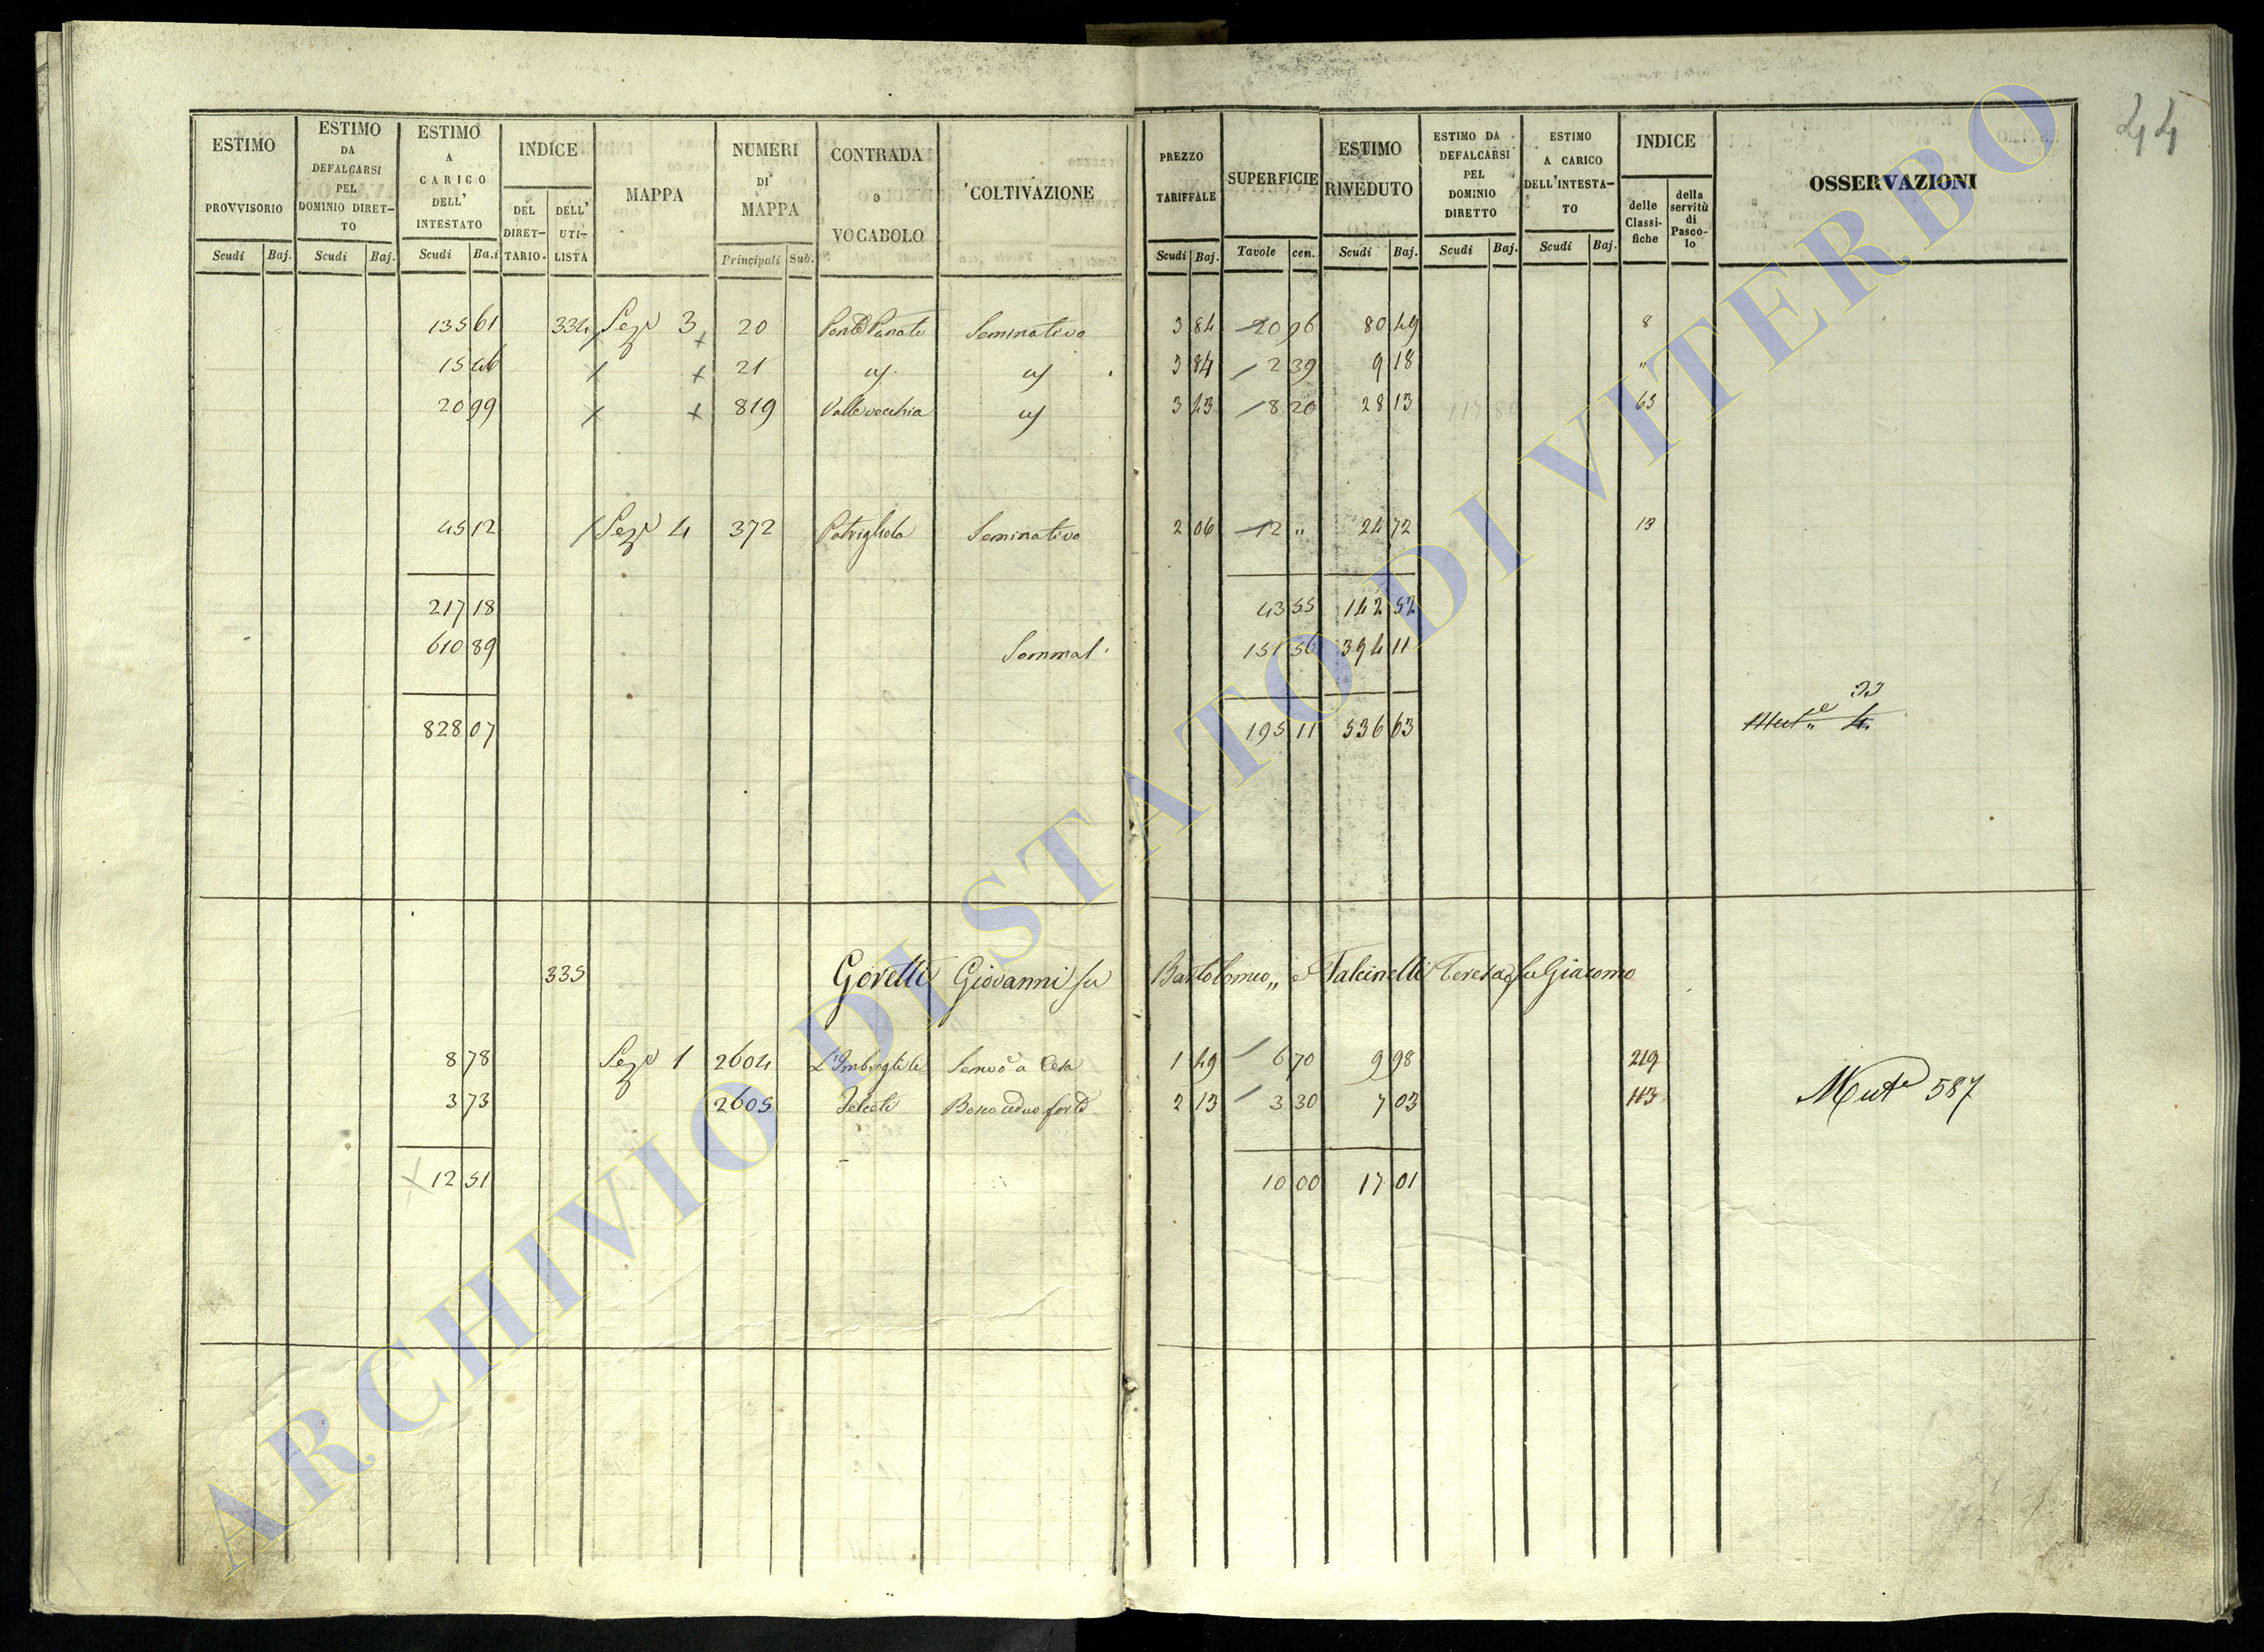 44
ESTIMO PROVVISORIO Scudi Baj.
ESTIMO DA DEFALCARSI PEL DOMINIO DIRETTO Scudi Baj.
ESTIMO A CARICO DELL' INTESTATO Scudi Ba.i
INDICE DEL DIRETTARIO. DELL' UTILISTA
MAPPA
NUMERI DI MAPPA Principali Sub.
CONTRADA O VOCABOLO
COLTIVAZIONE
PREZZO TARIFFALE Scudi Baj.
SUPERFICIE Tavole cen.
ESTIMO RIVEDUTO Scudi Baj.
ESTIMO DA DEFALCARSI PEL DOMINIO DIRETTO Scudi Baj.
ESTIMO A CARICO DELL'INTESTATO Scudi Baj.
INDICE delle Classifiche della servitù di Pascolo
OSSERVAZIONI
135 61 334 Sez 3 20 Seminativo 3 84 20 96 80 49 8
15 46 21 3 84 2 39 9 18 "
20 99 819 Valle vecchia 3 43 8 20 28 13 65
45 12 Sez 4 372 Seminativo 2 06 12 " 24 72 13
217 18 43 55 142 52
610 89 151 56 394 11
828 07 195 11 536 63 Mut.e 4 33
335 Goretti Giovanni fu Bartolomeo, e Falcinelli Teresa fu Giacomo
8 78 Sez 1 2604 1 49 6 70 9 98 219
3 73 2605 Bosco ceduo forte 2 13 3 30 7 03 113 Mut.e 587
12 51 10 00 17 01
ARCHIVIO DI STATO DI VITERBO